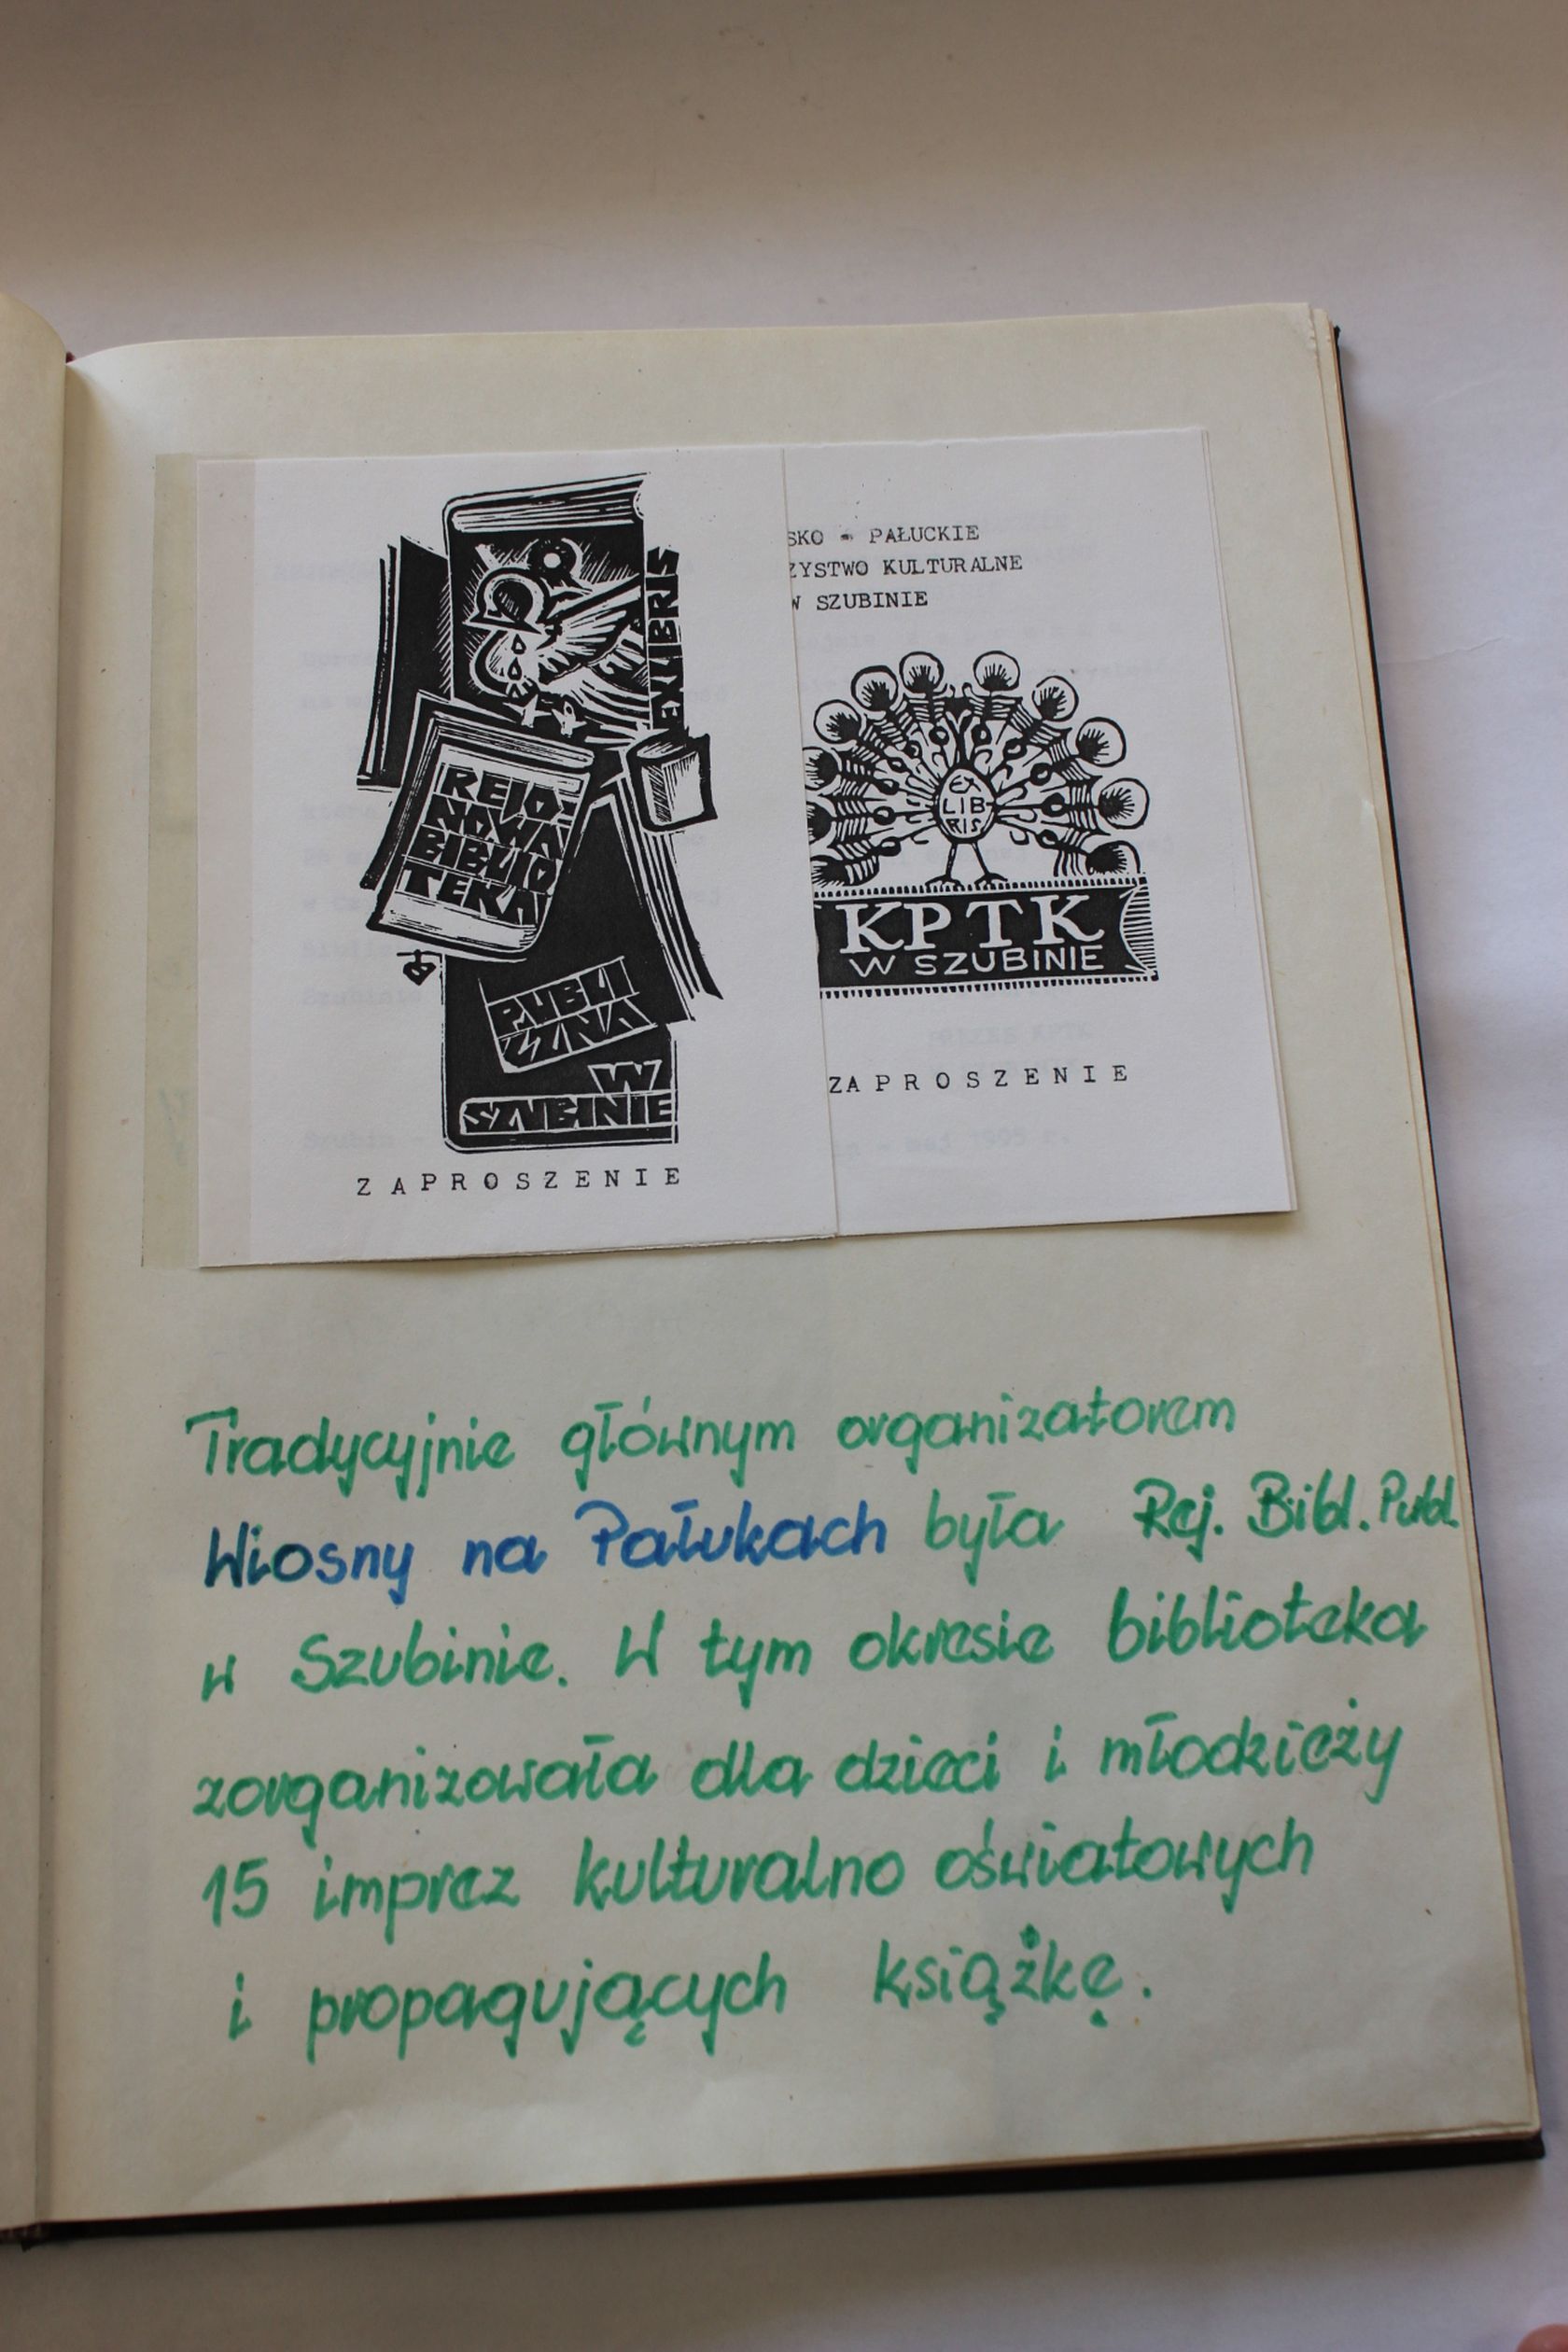 EXLIBRIS
REJO-
NOWA
BIBLIO
TEKA
PUBLI
CZNA
W
SZUBINIE
ZAPROSZENIE
SKO - PAŁUCKIE
ZYSTWO KULTURALNE
W SZUBINIE
EX
LIB
RIS
KPTK
W SZUBINIE
ZAPROSZENIE
Tradycyjnie głównym organizatorem
Wiosny na Pałukach była Rej. Bibl. Publ.
w Szubinie. W tym okresie biblioteka
zorganizowała dla dzieci i młodzieży
15 imprez kulturalno oświatowych
i propagujących książkę.